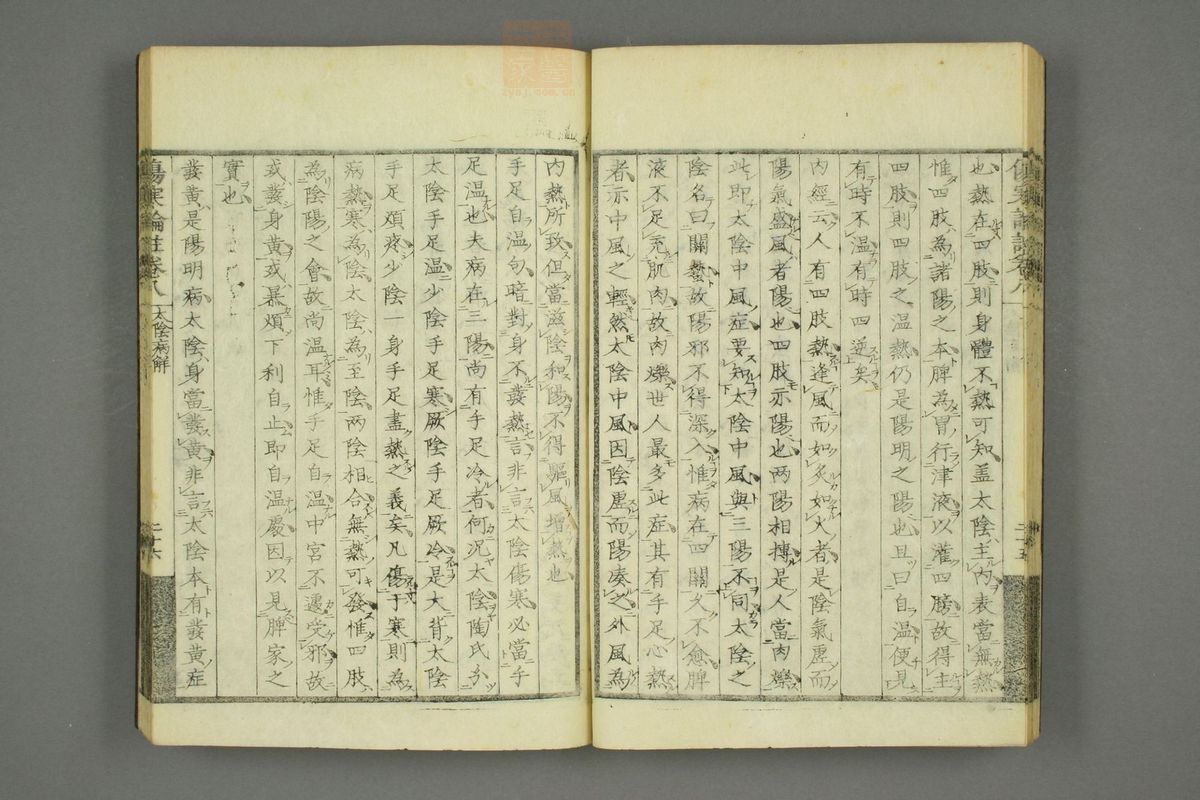 也熱在四肢則身體不熱可知盖太陰主內表當無熱
惟四肢為諸陽之本脾為胃行津液以灌四膀故得主
四肢則四肢之温熱仍是陽明之陽也且曰自温便見
有時不温有時四逆矣
內經云人有四肢熱逢風而如炙如火者是陰氣虛而
陽氣盛風者陽也四肢亦陽也两陽相摶是人當肉爍
此即太陰中風症要知太陰中風與三陽不同太陰之
陰名曰關蟄故陽邪不得深入惟病在四關久不愈脾
液不足充肌肉故肉爍世人最多此症其有手足心熱
者亦中風之輕然太陰中風因陰虛而陽凑之外風為
內熱所致但當滋陰和陽不得驅風增熱也
手足自温句暗對身不發熱言非言太陰傷寒必當手
足温也夫病在三陽尚有手足冷者何况太陰陶氏分
太陰手足温少陰手足寒厥陰手足厥冷是大背太陰
手足煩疼少陰一身手足盡熱之義矣凡傷于寒則為
病熱寒為陰太陰為至陰两陰相合無熱可發惟四肢
為陰陽之會故尚温耳惟手足自温中宮不遽受邪故
或發身黄或暴煩下利自止即自温處因以見脾家之
實也
發黄是陽明病太陰身當發黄非言太陰本有發黄症
傷寒論註卷八
太陰病解
二十六
傷寒論註卷八
二十五
zysj.com.cn